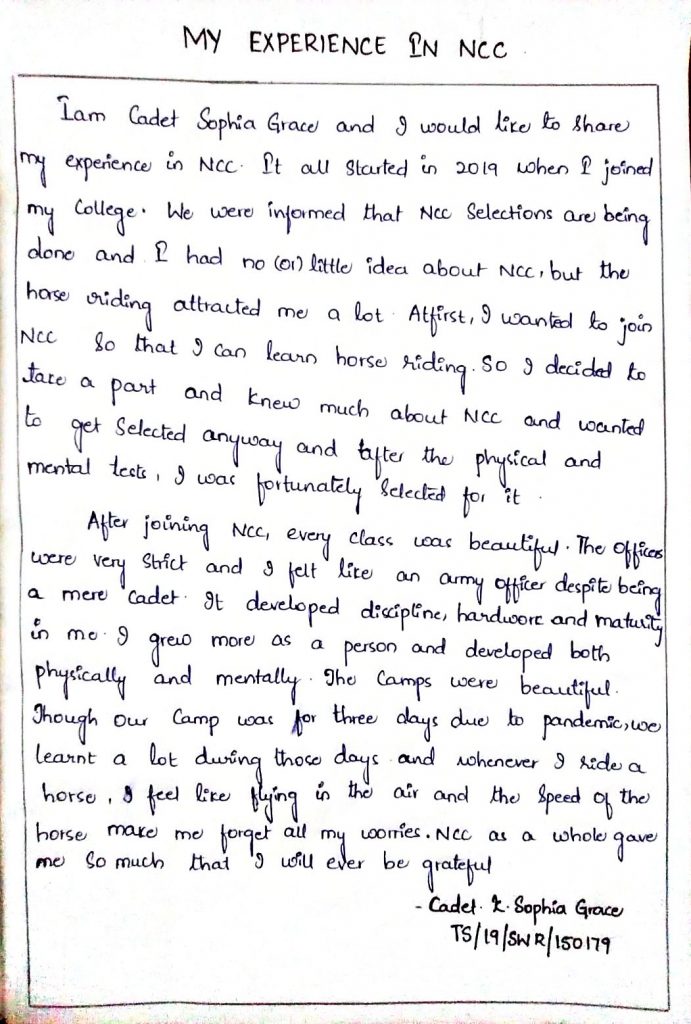 MY EXPERIENCE IN NCC
Iam Cadet Sophia Grace and I would like to share
my experience in NCC. It all started in 2019 when I joined
my College. We were informed that NCC Selections are being
done and I had no (or) little idea about NCC, but the
horse riding attracted me a lot. Atfirst, I wanted to join
NCC So that I can learn horse riding. So I decided to
take a part and knew much about NCC and wanted
to get Selected anyway and after the physical and
mental tests, I was fortunately Selected for it.
After joining NCC, every class was beautiful. The Officers
were very Strict and I felt like an army officer despite being
a mere Cadet. It developed discipline, hardwork and maturity
in me. I grew more as a person and developed both
physically and mentally. The Camps were beautiful.
Though our Camp was for three days due to pandemic, we
learnt a lot during those days and whenever I ride a
horse, I feel like flying in the air and the Speed of the
horse make me forget all my worries. NCC as a whole gave
me So much that I will ever be grateful
- Cadet. K. Sophia Grace
TS/19/SWR/150179